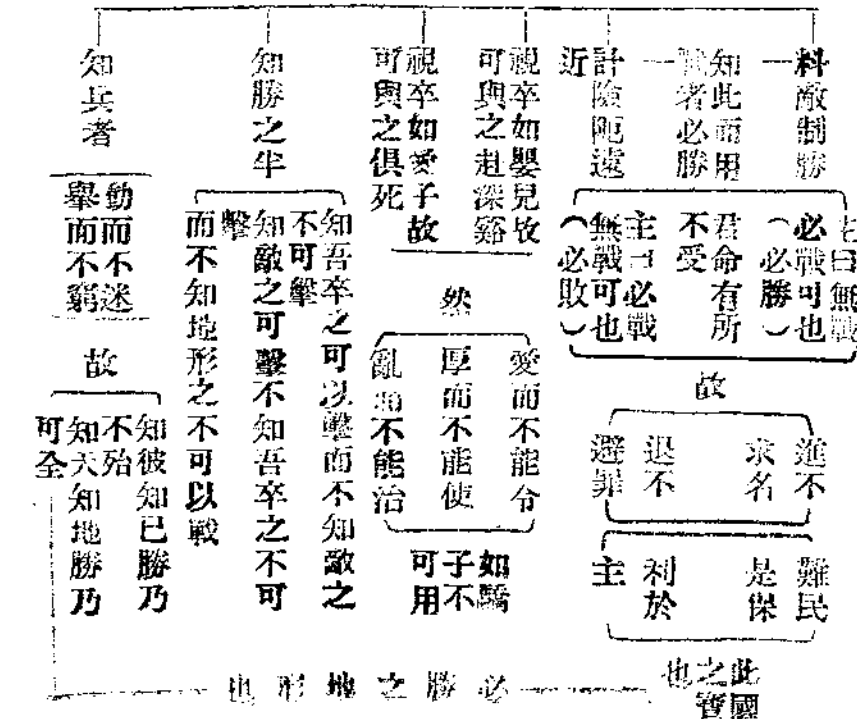 料敵制勝
計險阨遠
近
知此而用
戰者必勝
主曰無戰
必戰可也
（必勝）
君命有所
不受
主曰必戰
無戰可也
（必敗）
故
進不
求名
退不
避罪
難民
是保
利於
主
此國
之寶
也
視卒如嬰兒故
可與之赴深谿
視卒如愛子故
可與之俱死
然
愛而不能令
厚而不能使
亂而不能治
如驕
子不
可用
知勝之半
知吾卒之可以擊而不知敵之
不可擊
知敵之可擊不知吾卒之不可
擊
而不知地形之不可以戰
知兵者
動而不迷
舉而不窮
故
知彼知已勝乃
不殆
知天知地勝乃
可全
必勝之地形也